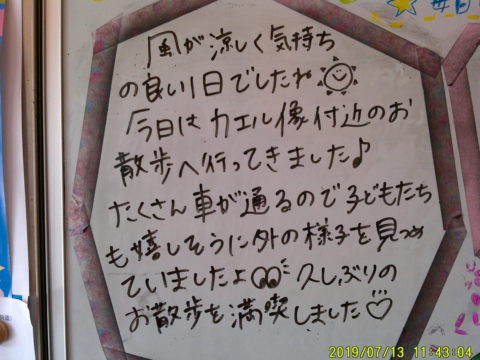 風が涼しく気持ち
の良い1日でしたね
今日はカエル像付近のお
散歩へ行ってきました♪
たくさん車が通るので子どもたち
も嬉しそうに外の様子を見つめ
ていましたよ 久しぶりの
お散歩を満喫しました♡
2019/07/13 11:43:04